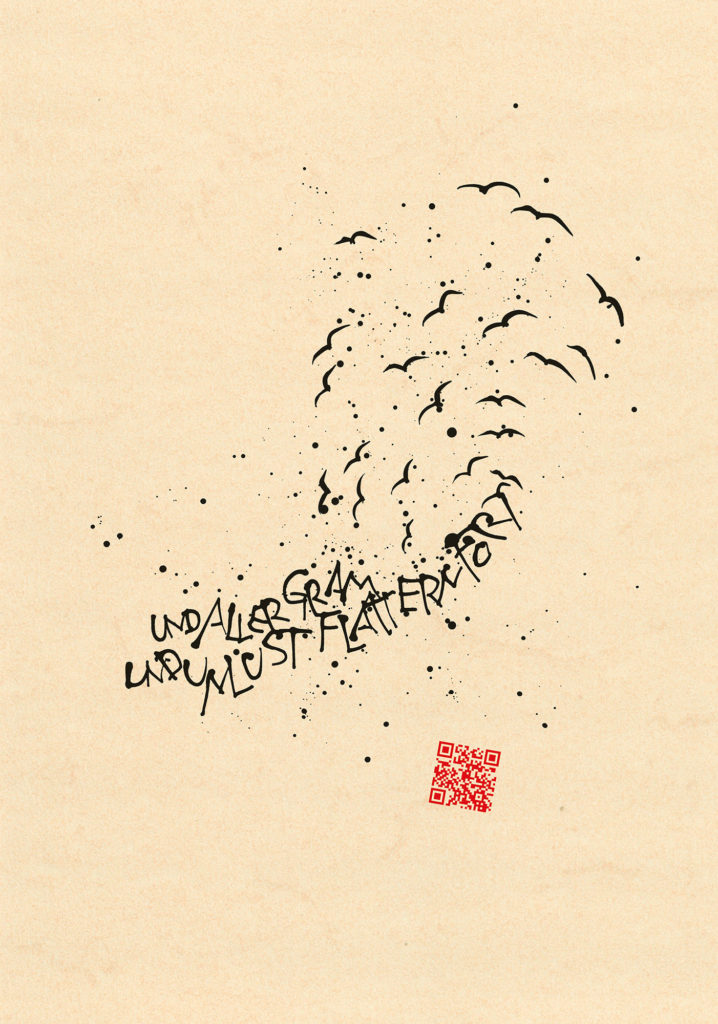 UND ALLER GRAM
UND UNLUST FLATTERN FORT